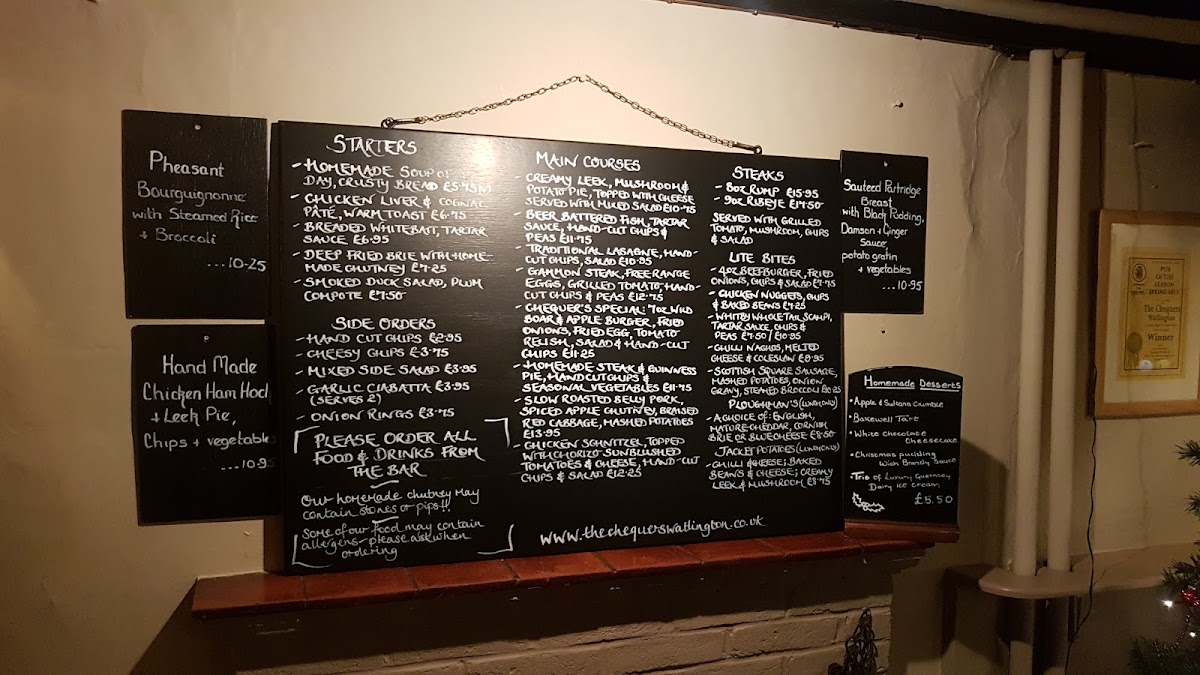 Pheasant
Bourguignonne
with Steamed Rice
+ Broccoli
...10-25
Hand Made
Chicken Ham Hock
+ Leek Pie,
Chips + vegetables
...10-95
STARTERS
- HOMEMADE SOUP OF
DAY, CRUSTY BREAD £5.75
- CHICKEN LIVER & COGNAC
PÂTÉ, WARM TOAST £6.75
- BREADED WHITEBAIT, TARTAR
SAUCE £6.95
- DEEP FRIED BRIE WITH HOME-
MADE CHUTNEY £7.25
- SMOKED DUCK SALAD, PLUM
COMPOTE £7.50
SIDE ORDERS
- HAND CUT CHIPS £2.95
- CHEESY CHIPS £3.75
- MIXED SIDE SALAD £3.95
- GARLIC CIABATTA £3.95
(SERVES 2)
- ONION RINGS £3.75
PLEASE ORDER ALL
FOOD & DRINKS FROM
THE BAR
Our homemade chutney may
contain stones or pips!!
Some of our food may contain
allergens - please ask when
ordering
MAIN COURSES
- CREAMY LEEK, MUSHROOM &
POTATO PIE, TOPPED WITH CHEESE
SERVED WITH MIXED SALAD £10.75
- BEER BATTERED FISH, TARTAR
SAUCE, HAND-CUT CHIPS &
PEAS £11.75
- TRADITIONAL LASAGNE, HAND-
CUT CHIPS, SALAD £10.95
- GAMMON STEAK, FREE RANGE
EGGS, GRILLED TOMATO, HAND-
CUT CHIPS & PEAS £12.75
- CHEQUER'S SPECIAL: 7oz WILD
BOAR & APPLE BURGER, FRIED
ONIONS, FRIED EGG, TOMATO
RELISH, SALAD & HAND-CUT
CHIPS £11.25
- HOMEMADE STEAK & GUINNESS
PIE, HAND CUT CHIPS &
SEASONAL VEGETABLES £11.75
- SLOW ROASTED BELLY PORK,
SPICED APPLE CHUTNEY, BRAISED
RED CABBAGE, MASHED POTATOES
£13.95
- CHICKEN SCHNITZEL, TOPPED
WITH CHORIZO SUNBLUSHED
TOMATOES & CHEESE, HAND-CUT
CHIPS & SALAD £12.25
www.thechequerswatlington.co.uk
STEAKS
- 8oz RUMP £15.95
- 9oz RIBEYE £17.50
SERVED WITH GRILLED
TOMATO, MUSHROOM, CHIPS
& SALAD
LITE BITES
- 4oz BEEFBURGER, FRIED
ONIONS, CHIPS & SALAD £7.75
- CHICKEN NUGGETS, CHIPS
& BAKED BEANS £7.25
- WHITBY WHOLE TAIL SCAMPI,
TARTAR SAUCE, CHIPS &
PEAS £7.50 / £10.95
- CHILLI NACHOS, MELTED
CHEESE & COLESLAW £8.95
- SCOTTISH SQUARE SAUSAGE,
MASHED POTATOES, ONION
GRAVY, STEAMED BROCCOLI £10.25
PLOUGHMAN'S (LUNCH ONLY)
- A CHOICE OF: ENGLISH,
MATURE CHEDDAR, CORNISH
BRIE OR BLUE CHEESE £8.50
JACKET POTATOES (LUNCH ONLY)
- CHILLI & CHEESE; BAKED
BEANS & CHEESE; CREAMY
LEEK & MUSHROOM £8.75
Sauteed Partridge
Breast
with Black Pudding,
Damson + Ginger
Sauce,
potato gratin
+ vegetables
...10-95
Homemade Desserts
• Apple & Sultana Crumble
• Bakewell Tart
• White Chocolate
Cheesecake
• Christmas pudding
With Brandy Sauce
• Trio of Luxury Guernsey
Dairy Ice Cream
£5.50
PUB
OF THE
SEASON
SPRING
The Chequers
Watlington
Winner